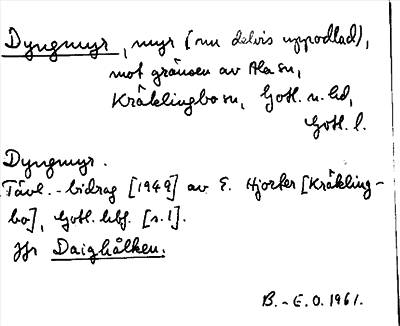 Dyngmyr, myr (nu delvis uppodlad),
mot gränsen av Ala sn,
Kräklingbo sn, Gotl. n. hd,
Gotl. l.
Dyngmyr.
Tävl.-bidrag [1949] av E. Hjorter [Kräkling-
bo], Gotl. hbf. [s. 1].
Jfr Daighålken.
B.-E. O. 1961.